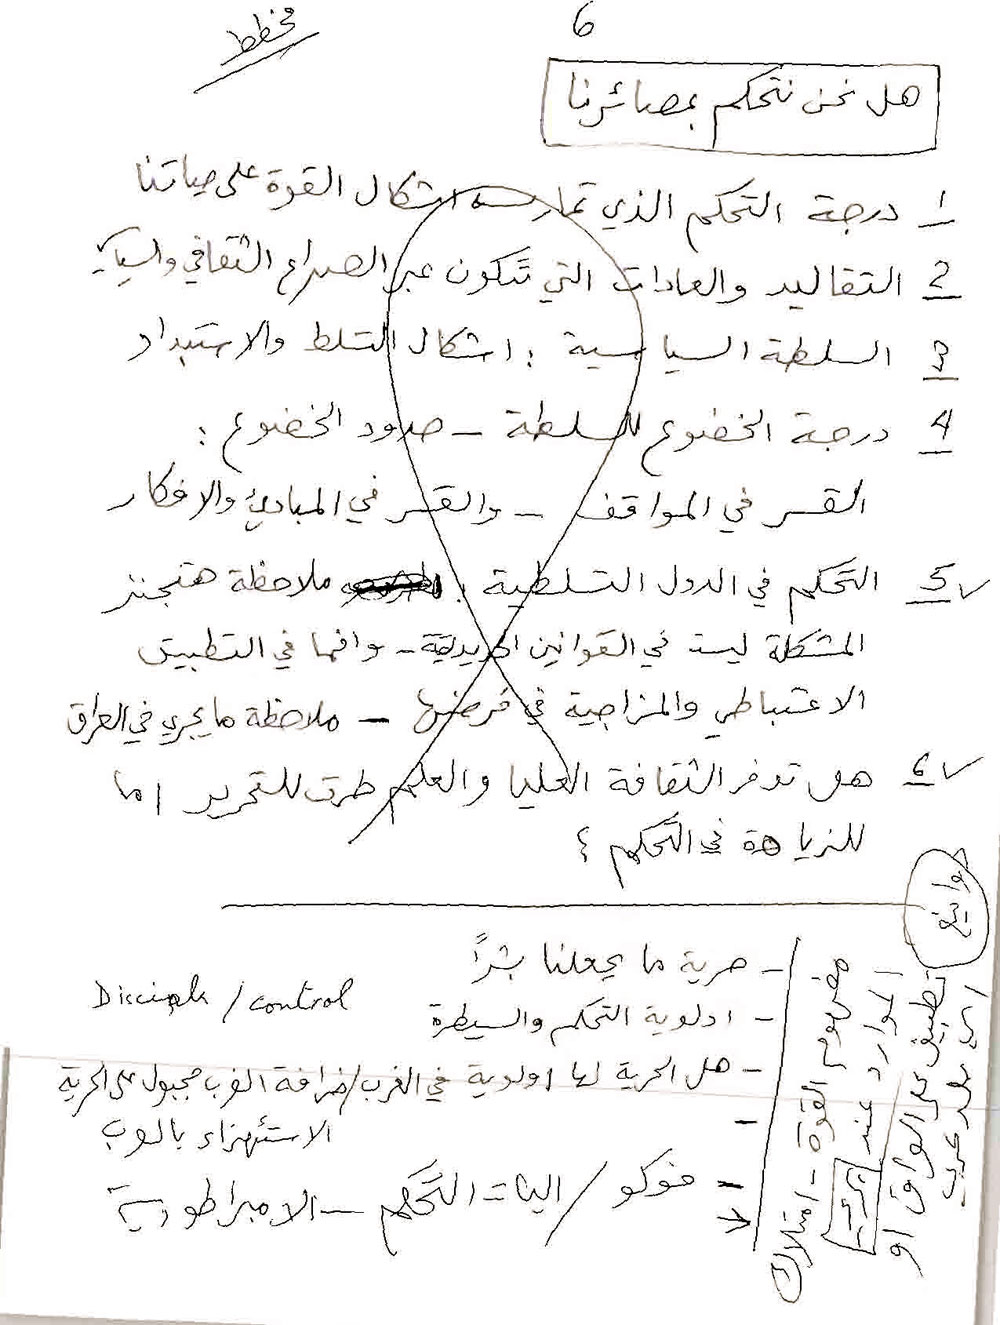 مخطط
6
هل نحن نتحكم بمصائرنا
1 درجة التحكم الذي تمارسه اشكال القوة على حياتنا
2 التقاليد والعادات التي تتكون عبر الصراع الثقافي والسياسي
3 السلطة السياسية : اشكال التسلط والاستبداد
4 درجة الخضوع للسلطة - حدود الخضوع :
القسر في المواقف - والقسر في المبادئ والافكار
5 التحكم في الدول التسلطية : ملاحظة هتجنز
المشكلة ليست في القوانين الحديدية - وانما في التطبيق
الاعتباطي والمزاجية في فرضها - ملاحظة ما يجري في العراق
6 هل توفر الثقافة العليا والعلم طرق للتحرير اما
للزيادة في التحكم ؟
- حرية ما يجعلنا بشراً
Disciple / control
- اولوية التحكم والسيطرة
- هل الحرية لها اولوية في الغرب / خرافة الغرب مجبول على الحرية
- الاستهزاء بالعرب
- فوكو / اليات التحكم - الامبراطورية
مفهوم القوة - امتلاك
الموارد عند
تطبيق على الواقع او
اي بلد عربي